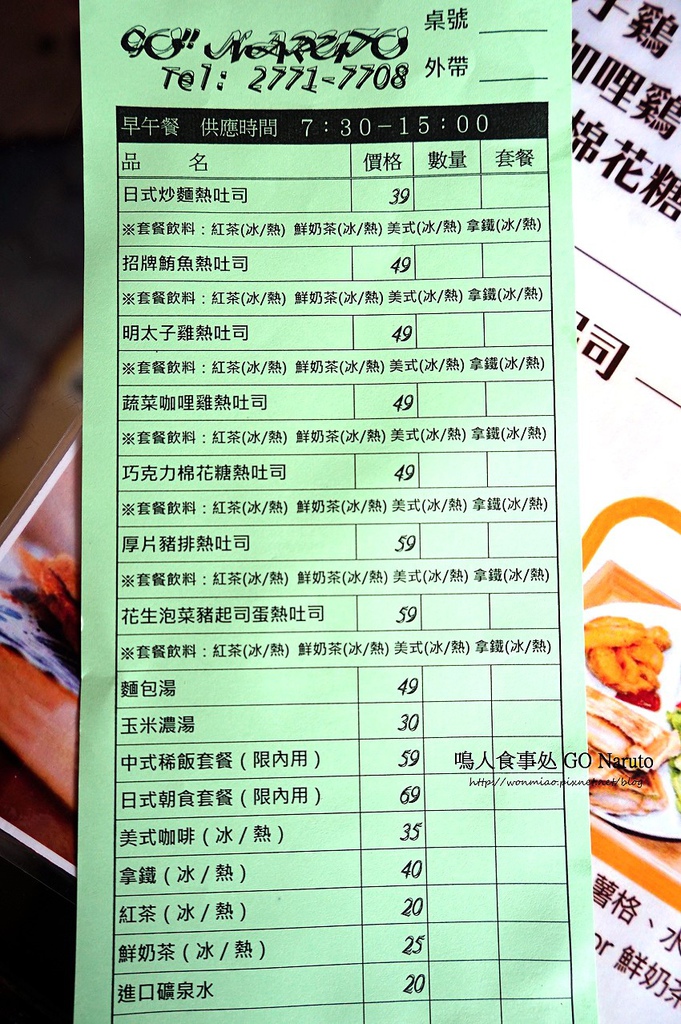 GO" NARUTO
桌號
Tel: 2771-7708
外帶
早午餐 供應時間 7:30-15:00
品 名 價格 數量 套餐
日式炒麵熱吐司 39
※套餐飲料：紅茶(冰/熱) 鮮奶茶(冰/熱) 美式(冰/熱) 拿鐵(冰/熱)
招牌鮪魚熱吐司 49
※套餐飲料：紅茶(冰/熱) 鮮奶茶(冰/熱) 美式(冰/熱) 拿鐵(冰/熱)
明太子雞熱吐司 49
※套餐飲料：紅茶(冰/熱) 鮮奶茶(冰/熱) 美式(冰/熱) 拿鐵(冰/熱)
蔬菜咖哩雞熱吐司 49
※套餐飲料：紅茶(冰/熱) 鮮奶茶(冰/熱) 美式(冰/熱) 拿鐵(冰/熱)
巧克力棉花糖熱吐司 49
※套餐飲料：紅茶(冰/熱) 鮮奶茶(冰/熱) 美式(冰/熱) 拿鐵(冰/熱)
厚片豬排熱吐司 59
※套餐飲料：紅茶(冰/熱) 鮮奶茶(冰/熱) 美式(冰/熱) 拿鐵(冰/熱)
花生泡菜豬起司蛋熱吐司 59
※套餐飲料：紅茶(冰/熱) 鮮奶茶(冰/熱) 美式(冰/熱) 拿鐵(冰/熱)
麵包湯 49
玉米濃湯 30
中式稀飯套餐（限內用） 59
日式朝食套餐（限內用） 69
美式咖啡（冰/熱） 35
拿鐵（冰/熱） 40
紅茶（冰/熱） 20
鮮奶茶（冰/熱） 25
進口礦泉水 20
鳴人食事处 GO Naruto
http://wonmiao.pixnet.net/blog
子雞
咖哩雞
棉花糖
司
薯格、水
or 鮮奶茶